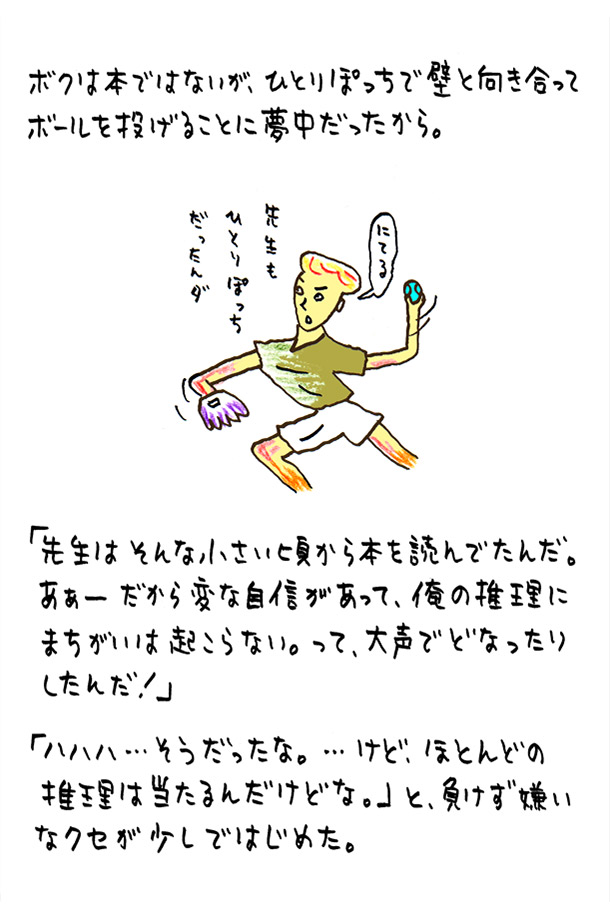 ボクは本ではないが、ひとりぽっちで壁と向き合って
ボールを投げることに夢中だったから。
にてる
先生も
ひとりぽっち
だったんダ
「先生はそんな小さい頃から本を読んでたんだ。
あぁーだから変な自信があって、俺の推理に
まちがいは起こらない。って、大声でどなったり
したんだ!」
「ハハハ…そうだったな。…けど、ほとんどの
推理は当たるんだけどな。」と、負けず嫌い
なクセが少しではじめた。